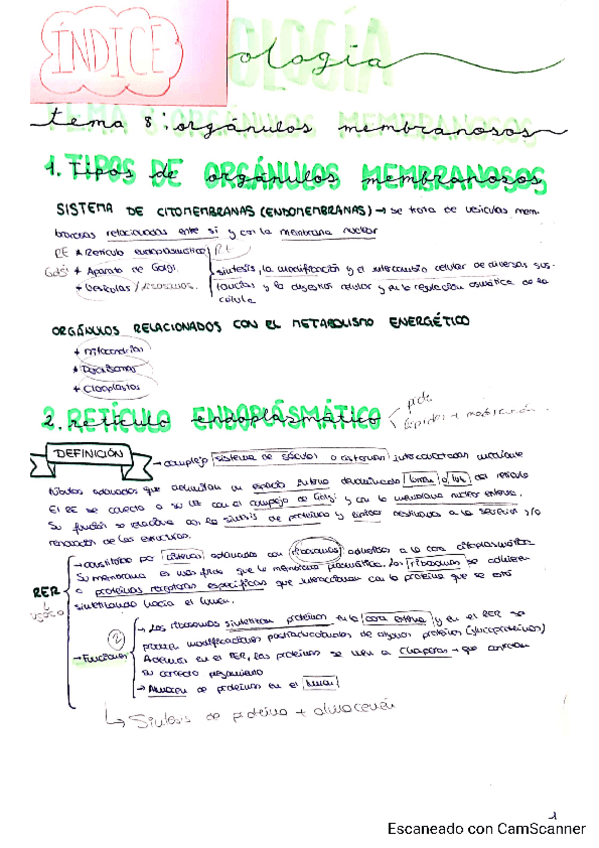 ÍNDICE
ología
tema 8: orgánulos membranosos
1. Tipos DE ORGÁNULOS membranosos
SISTEMA DE CITOMEMBRANAS (ENDOMEMBRANAS) → se trata de vesículas mem-
branosas relacionadas entre sí y con la membrana nuclear
RE * Retículo endoplasmático RE
Golgi * Aparato de Golgi síntesis, la modificación y el intercambio celular de diversas sus-
* Vesículas / tancias y la digestión celular y en la regulación osmótica de la
célula
ORGÁNULOS RELACIONADOS CON EL METABOLISMO ENERGÉTICO
+ mitocondrias
+ Peroxisomas
+ Cloroplastos
2. RETÍCULO ENDOPLÁSMÁTICO
DEFINICIÓN → complejo sistema de sáculos o cisternas interconectadas mediante
que delimitan un espacio interno denominado lumen o luz del retículo
El RE se conecta a su vez con el complejo de Golgi y con la membrana nuclear externa.
Su función se relaciona con la síntesis de proteínas y lípidos destinados a la secreción y/o
renovación de las estructuras.
→ constituido por cisternas adosadas con ribosomas adheridos a la cara citoplasmática
Su membrana es más fina que la membrana plasmática. Los ribosomas se adhieren
RER a proteínas receptoras específicas que interaccionan con la proteína que se está
sintetizando hacia el lumen.
2 → Los ribosomas sintetizan proteínas en la cara externa y en el RER se
modificaciones postraduccionales de algunas proteínas (glucoproteínas)
→ Funciones Además en el RER, las proteínas se unen a chaperonas → que controlan
su correcto plegamiento
→ Almacén de proteínas en el lumen
↳ Síntesis de proteína + almacenén
1
Escaneado con CamScanner